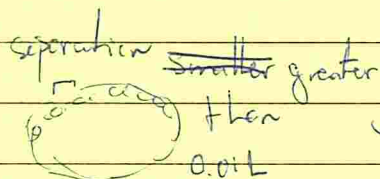 seperation ~~smaller~~ greater
then
0.01L